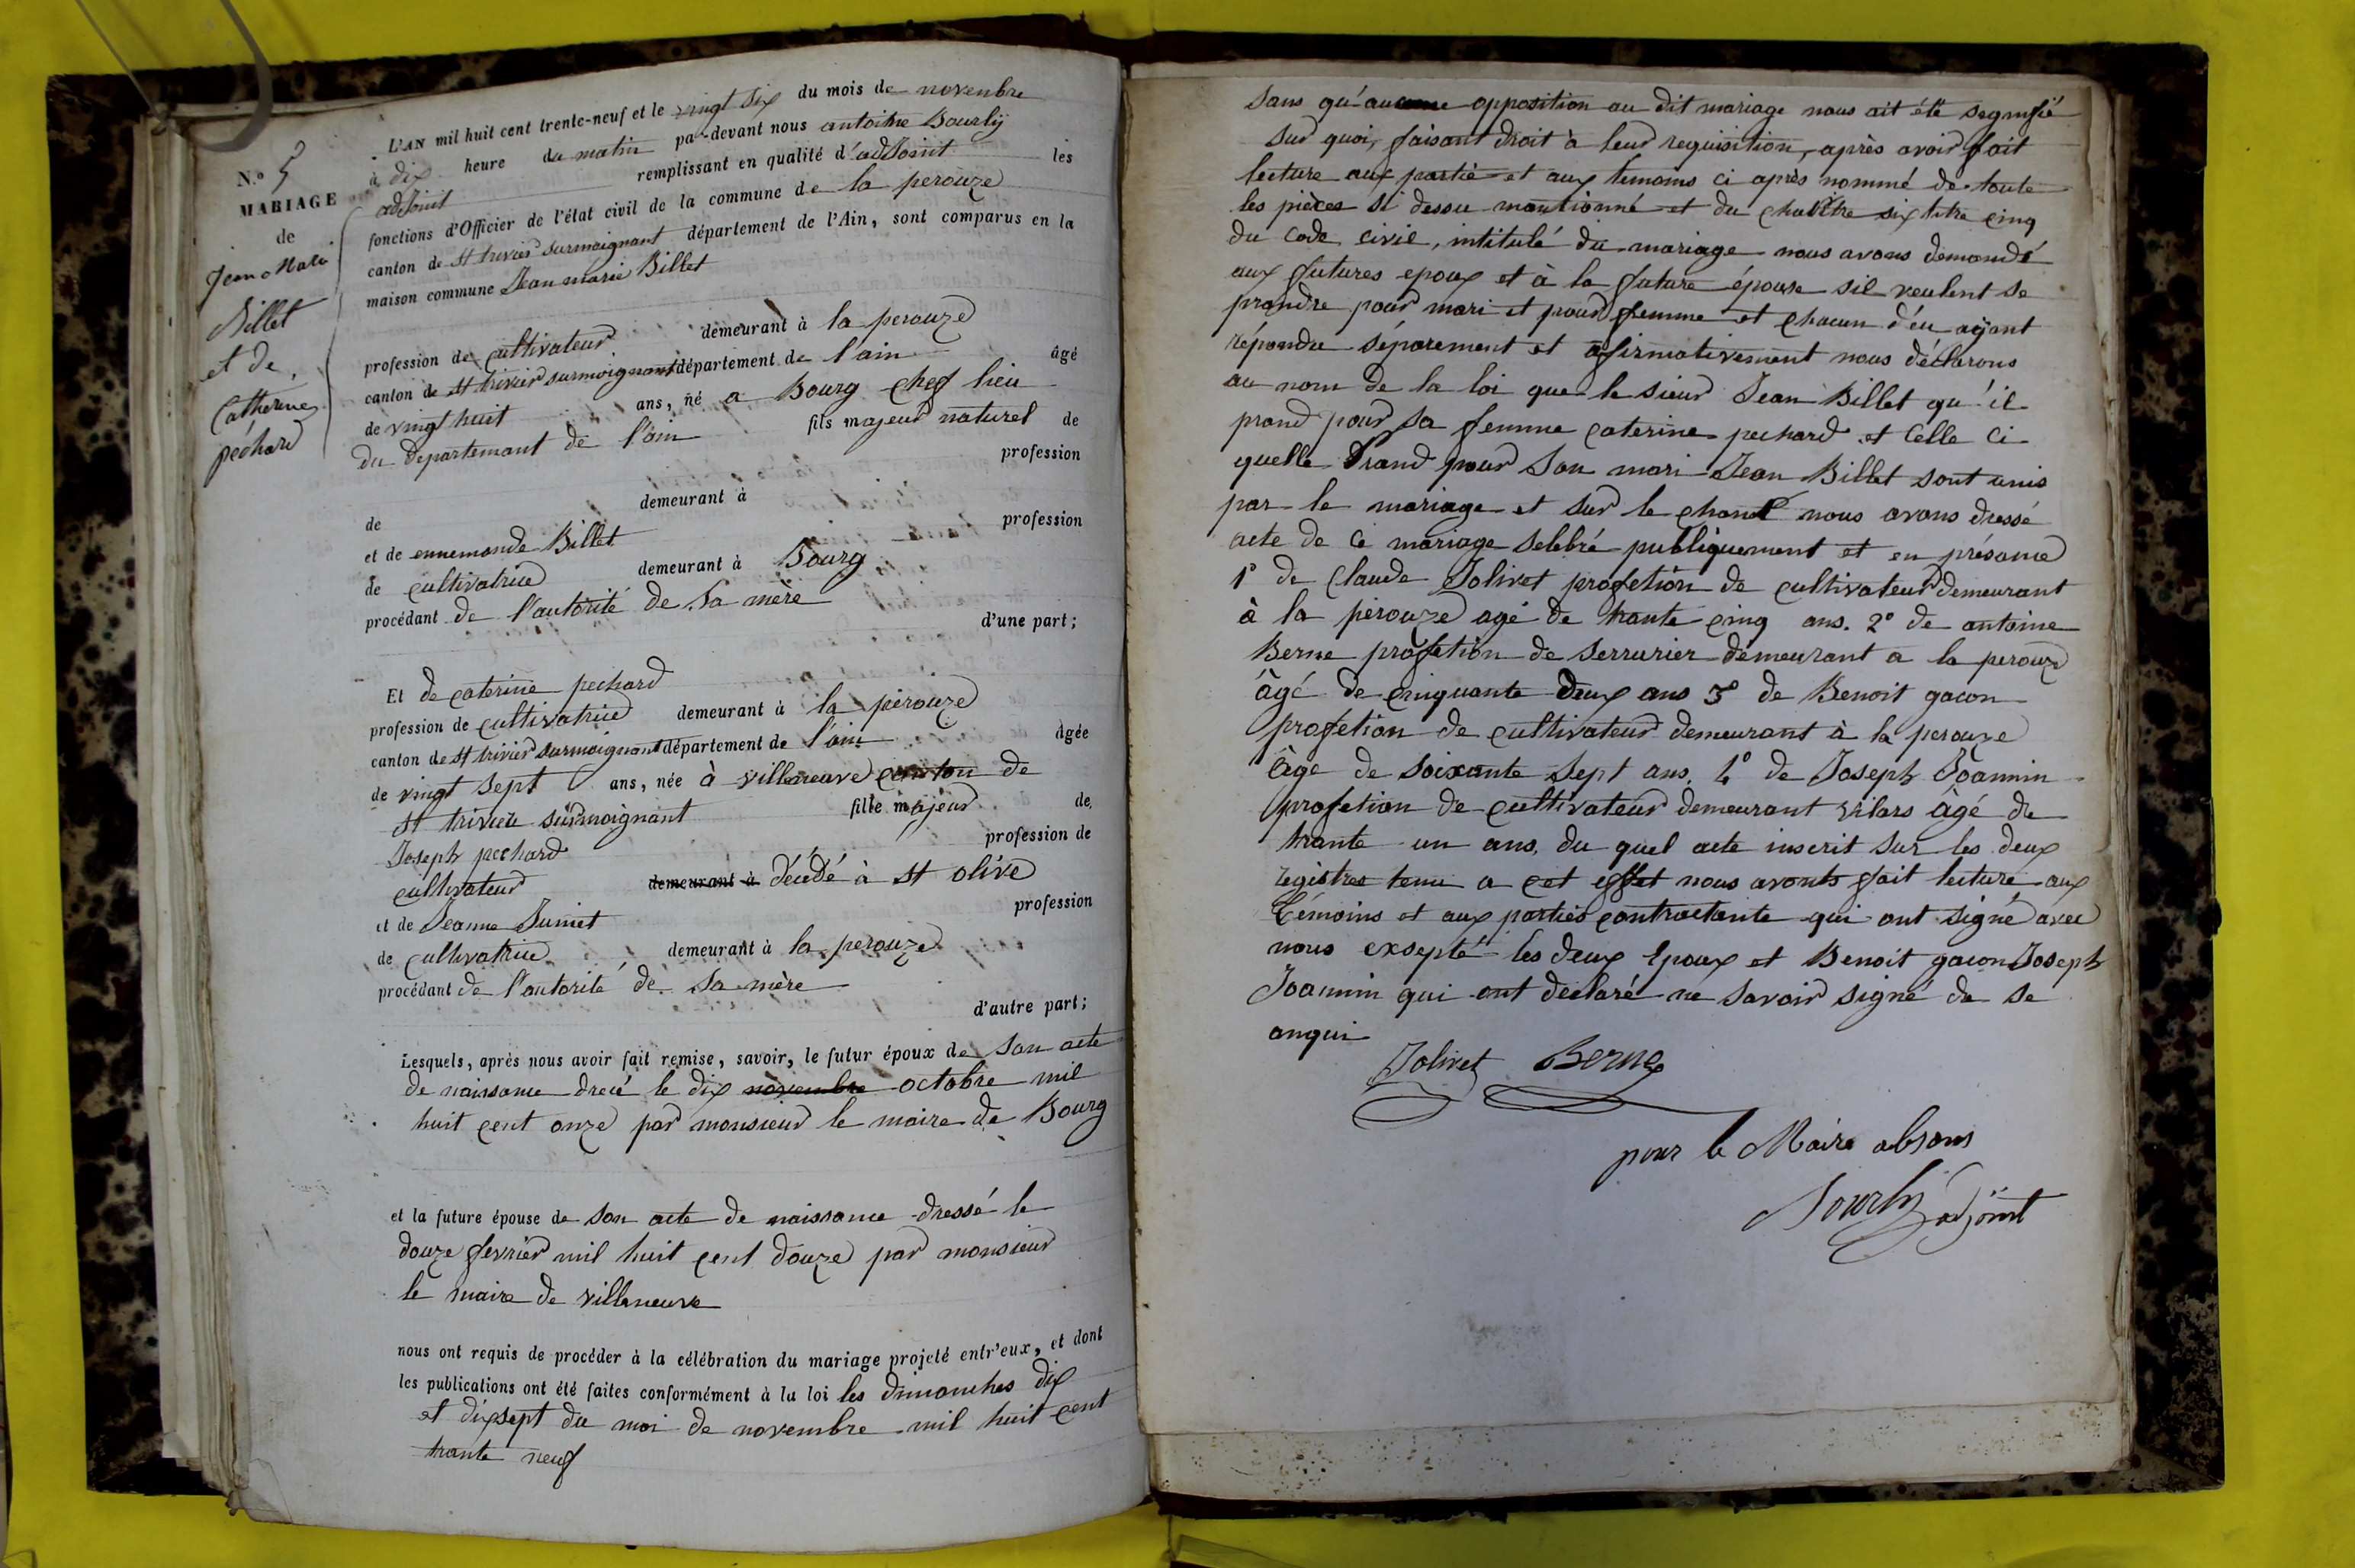 N.º 5
MARIAGE
de
Jean Marie
Billet
et de
Catherine
péchard
L'AN mil huit cent trente-neuf et le vingt six du mois de novenbre
à dix heure du matin par-devant nous antoine Bourly
adJoint remplissant en qualité d'adJoint les
fonctions d'Officier de l'état civil de la commune de la perouze
canton de st trivier surmoignant département de l'Ain, sont comparus en la
maison commune Jean marie Billet
profession de cultivateur demeurant à la perouze
canton de st trivier surmoignant département de l'ain âgé
de vingt huit ans, né a Bourg chef lieu
du departemant de l'ain fils majeur naturel de
profession
de demeurant à
et de ennemonde Billet profession
de cultivatrice demeurant à Bourg
procédant de l'autorité de sa mère
d'une part;
Et de caterine pechard
profession de cultivatrice demeurant à la pérouze
canton de st trivier surmoignant département de l'ain âgée
de vingt sept ans, née à villeneuve canton de
st trivier surmoignant fille majeur de
Joseph pechard profession de
cultivateur demeurant à décédé à st olive
et de Jeanne Juniet profession
de cultivatrice demeurant à la perouze
procédant de l'autorité de sa mère
d'autre part;
Lesquels, après nous avoir fait remise, savoir, le futur époux de son acte
de naissance drecé le dix novembre octobre mil
huit cent onze par monsieur le maire de Bourg
et la future épouse de son acte de naissance dressé le
douze fevrier mil huit cent douze par monsieur
le maire de villeneuve
nous ont requis de procéder à la célébration du mariage projeté entr'eux, et dont
les publications ont été faites conformément à la loi les dimanches dix
et dixsept du moi de novembre mil huit cent
trante neuf
sans qu'aucune opposition au dit mariage nous ait été segnifié
sur quoi, faisant droit à leur requisition, après avoir fait
lecture aux partie et aux temoins ci après nommé de toute
les pièces si dessu mantionné et du chapitre six titre cinq
du code civil, intitulé du mariage nous avons demandé
aux futures epoux et à la future épouse sil veulent se
prandre pour mari et pour femme et chacun d'eu ayant
répondu séparement et afirmativement nous déclarons
au nom de la loi que le sieur Jean Billet qu'il
prand pour sa femme caterine pechard et celle ci
quelle Prand pour son mari Jean Billet sont unis
par le mariage et sur le chant nous avons dressé
acte de ce mariage selebré publiquement et en présance
1º de Claude Jolivet profetion de cultivateur demeurant
à la pérouze agé de trante cinq ans. 2º de antoine
Berne profetion de serrurier demeurant a la perouze
âgé de cinquante deux ans 3º de Benoit gacon
profetion de cultivateur demeurant à la perouze
âge de soixante sept ans. 4º de Joseph Joannin
profetion de cultivateur demeurant vilars âgé de
trante un ans, du quel acte inscrit sur les deux
registres tenu a cet effet nous avonts fait lecture aux
témoins et aux parties contractante qui ont signé avec
nous exsepté les deux Epoux et Benoit gacon Joseph
Joannin qui ont déclaré ne savoir signé de se
anqui
Jolivet Berne
pour le Maire absans
Bourly adjoint